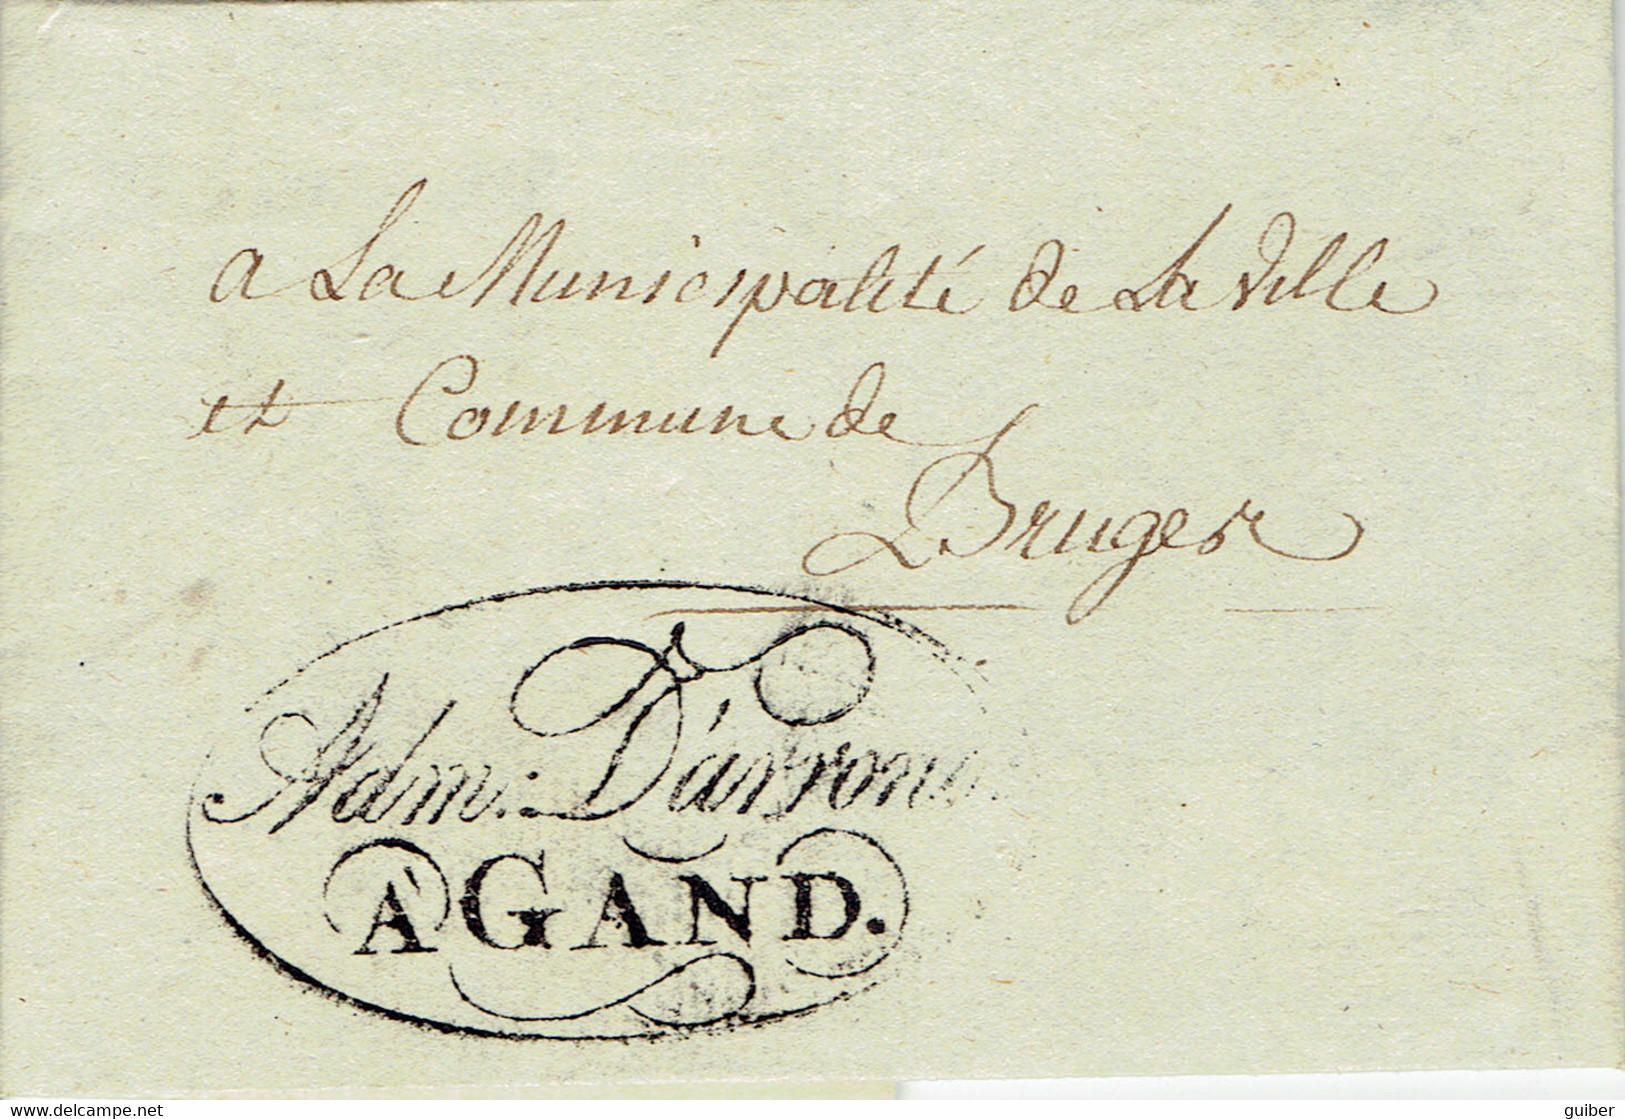 a La Municipalité de La Ville
et Commune de
Bruges
Adm: D'arron
A GAND.
www.delcampe.net
guiber